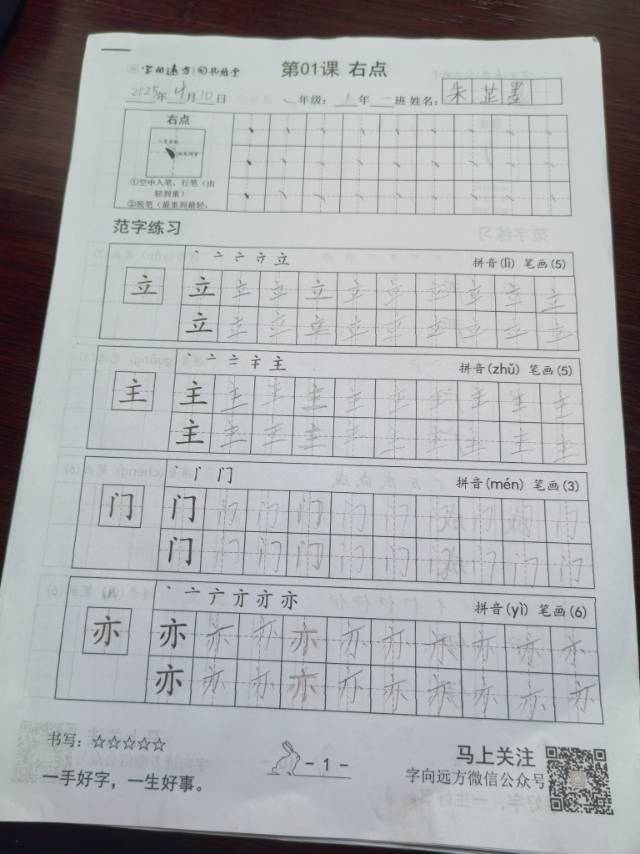 第01课 右点
2025年4月10日 一年级: 1年一班 姓名: 朱芷墨
右点
①空中入笔,行笔(由
轻到重)
②顿笔(最重到最轻,
范字练习
丶 亠 亠 立 立 拼音(lì) 笔画(5)
立 立 立 立 立 立 立 立 立 立
立 立 立 立 立 立 立 立 立 立
主 拼音(zhǔ) 笔画(5)
主 主 主 主 主 主 主 主 主 主 主
主 主 主 主 主 主 主 主 主 主
门 拼音(mén) 笔画(3)
门 门 门 门 门 门 门 门 门 门 门
门 门 门 门 门 门 门 门 门 门
亦 拼音(yì) 笔画(6)
亦 亦 亦 亦 亦 亦 亦 亦 亦 亦 亦
亦 亦 亦 亦 亦 亦 亦 亦 亦 亦
书写:☆☆☆☆☆
- 1 -
马上关注
一手好字,一生好事。
字向远方微信公众号